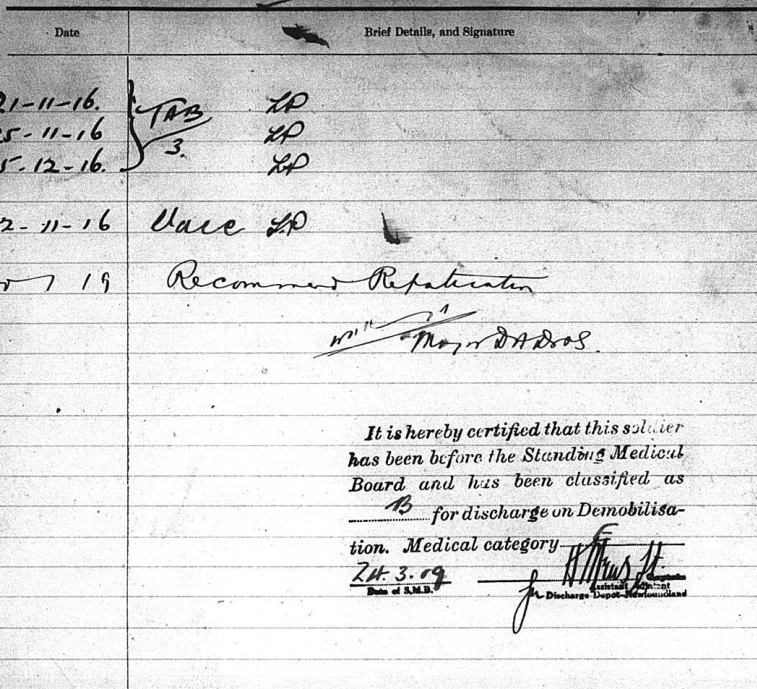 Date Brief Details, and Signature
21-11-16. TAB LP
25-11-16 3. LP
5-12-16. LP
2-11-16 Vacc LP
19 Recommend Repatriation
Major DADOS.
It is hereby certified that this soldier
has been before the Standing Medical
Board and has been classified as
B for discharge on Demobilisa-
tion. Medical category E
24.3.19
Date of S.M.B.
for
Captain
Assistant Adjutant
Discharge Depot-Newfoundland